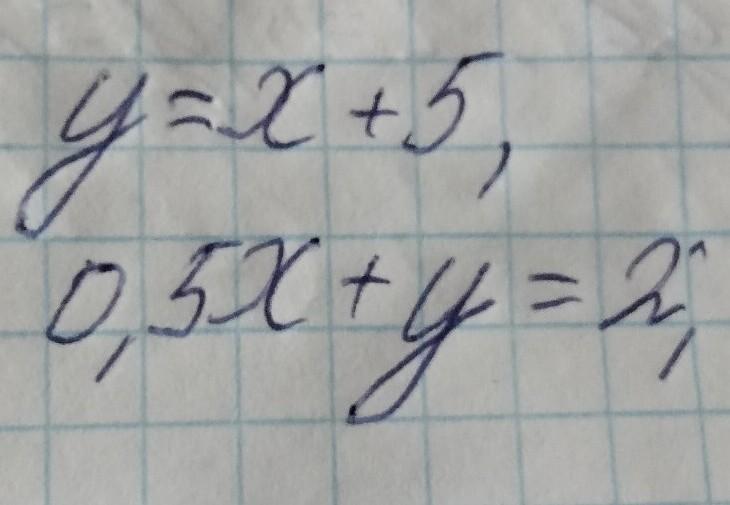 y = x + 5,
0,5x + y = 2,